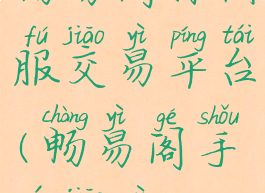 fú jiāo yì píng tái
服交易平台
chàng yì gé shǒu
(畅易阁手